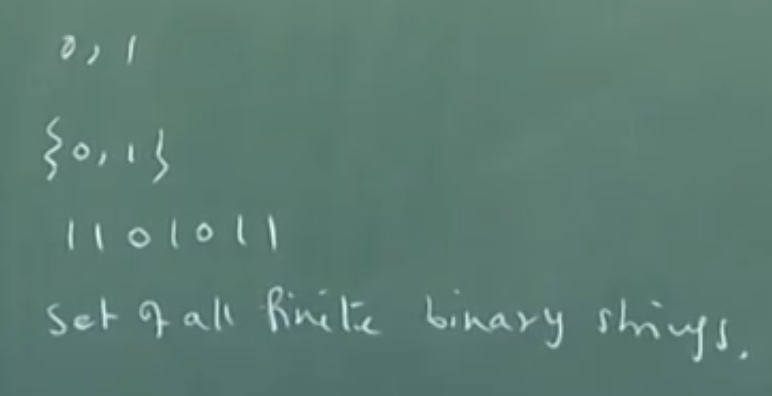 0, 1
{0, 1}
1101011
Set of all finite binary strings.